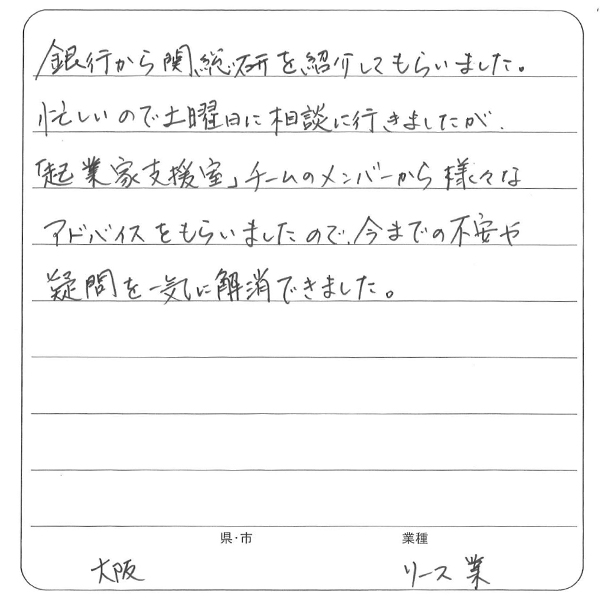 銀行から関総研を紹介してもらいました。
忙しいので土曜日に相談に行きましたが、
「起業家支援室」チームのメンバーから様々な
アドバイスをもらいましたので、今までの不安や
疑問を一気に解消できました。
県・市 業種
大阪 リース業